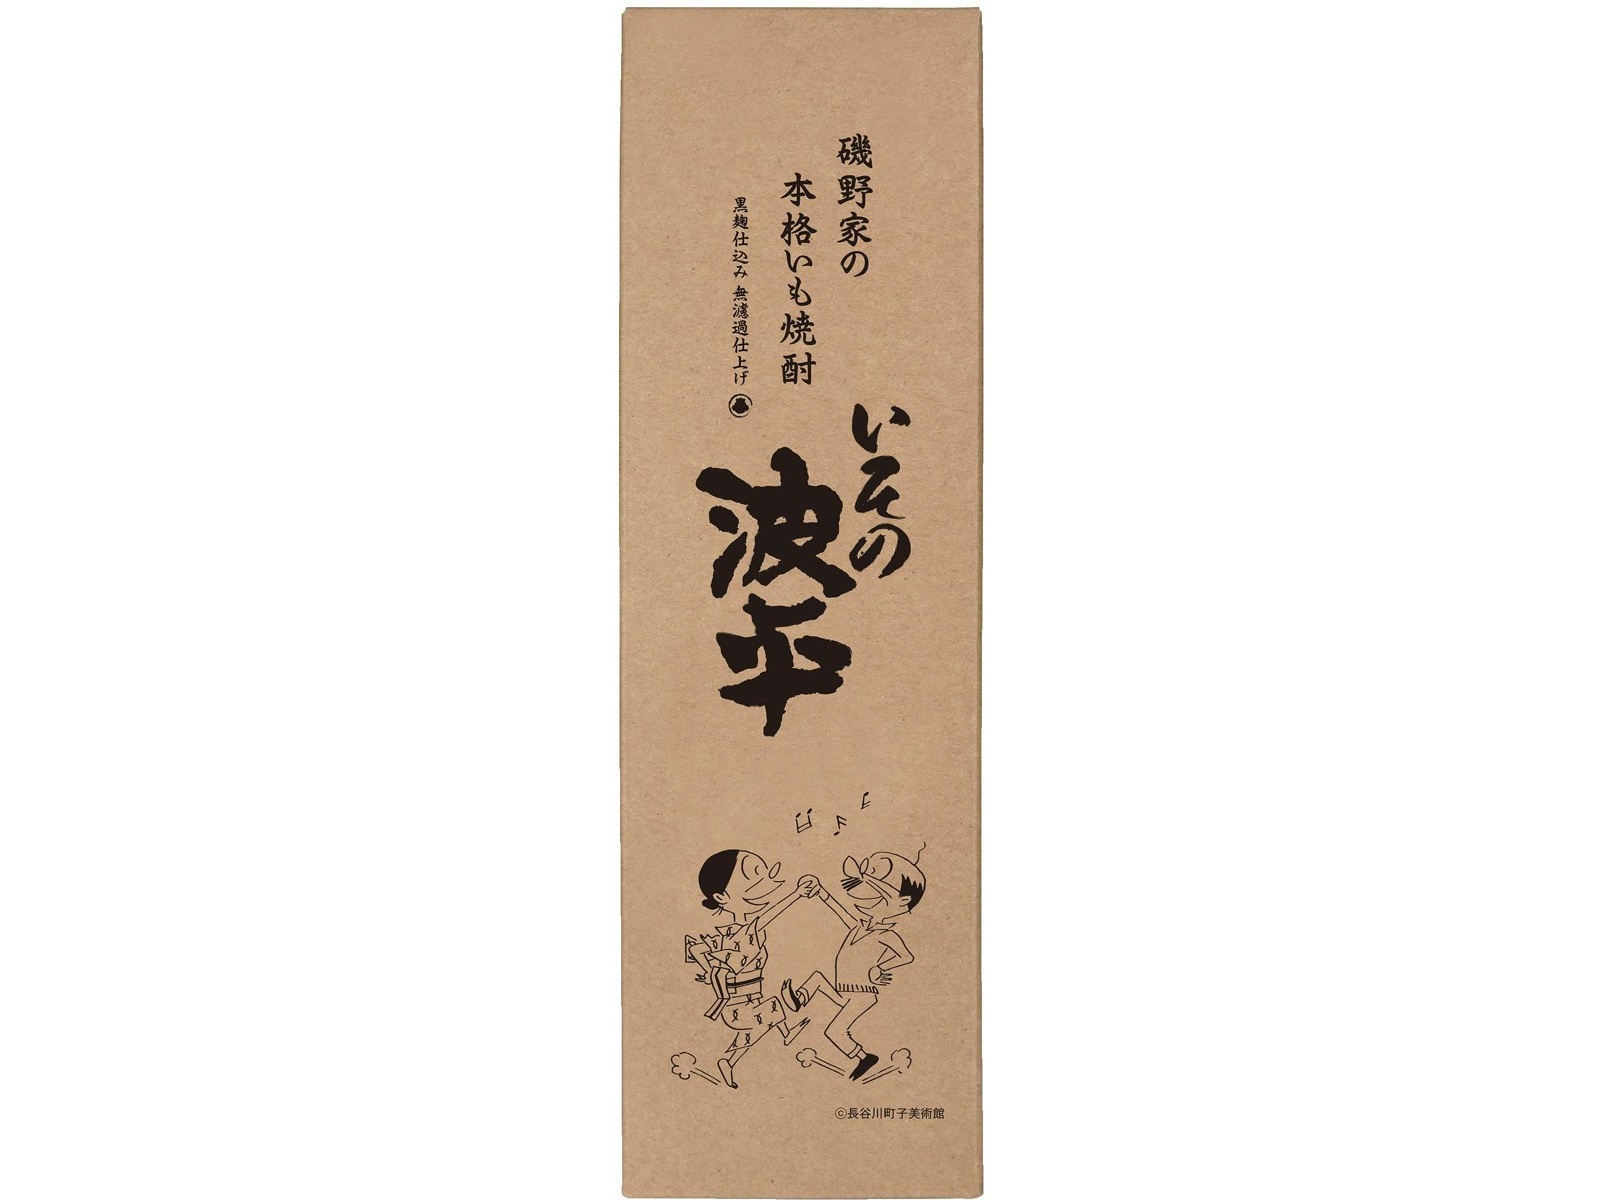 磯野家の
本格いも焼酎
黒麹仕込み 無濾過仕上げ
いその
波平
©長谷川町子美術館